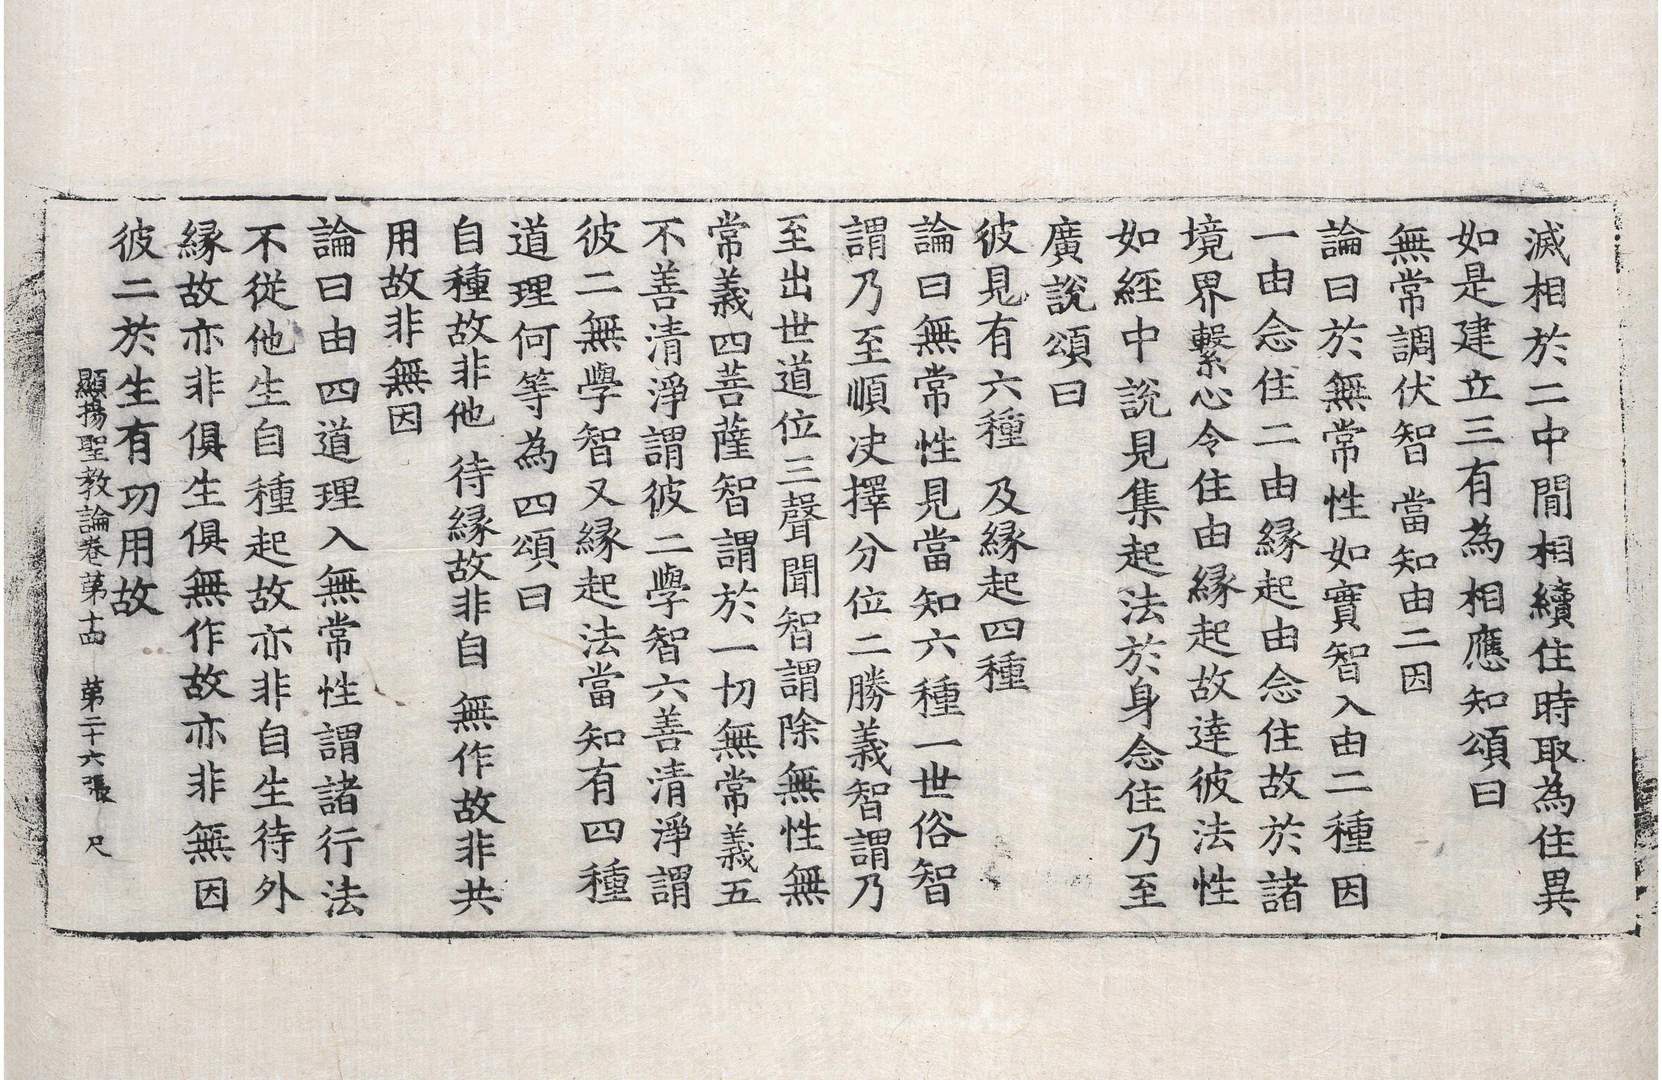 滅相於二中間相續住時取為住異
如是建立三有為相應知頌曰
無常調伏智 當知由二因
論曰於無常性如實智入由二種因
一由念住二由緣起由念住故於諸
境界繫心令住由緣起故達彼法性
如經中說見集起法於身念住乃至
廣說頌曰
彼見有六種 及緣起四種
論曰無常性見當知六種一世俗智
謂乃至順决擇分位二勝義智謂乃
至出世道位三聲聞智謂除無性無
常義四菩薩智謂於一切無常義五
不善清淨謂彼二學智六善清淨謂
彼二無學智又緣起法當知有四種
道理何等為四頌曰
自種故非他 待緣故非自 無作故非共
用故非無因
論曰由四道理入無常性謂諸行法
不從他生自種起故亦非自生待外
緣故亦非俱生俱無作故亦非無因
彼二於生有功用故
顯揚聖教論卷第十四 第二十六張 尺